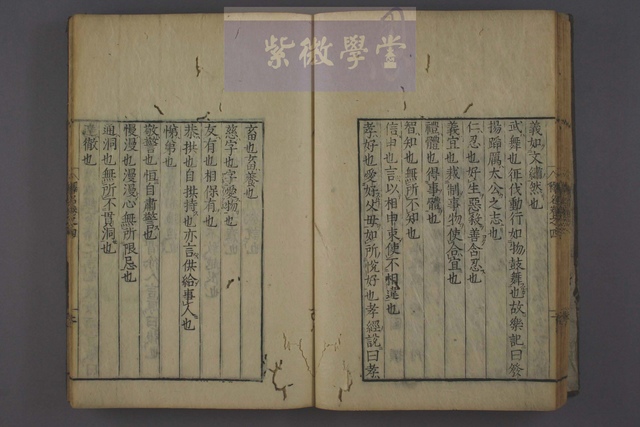 紫微學堂
義如文繡然也
武舞也征伐動行如物鼓舞也故樂記曰發
揚蹈厲太公之志也
仁忍也好生惡殺善含忍也
義宜也裁制事物使合宜也
禮體也得事體也
智知也無所不知也
信申也言以相申束使不相違也
孝好也愛好父母如所悅好也孝經說曰孝
畜也畜養也
慈字也字愛物也
友有也相保有也
恭拱也自拱持也亦言供給事人也
悌第也
敬警也恒自肅警也
慢漫也漫漫心無所限忌也
通洞也無所不貫洞也
達徹也